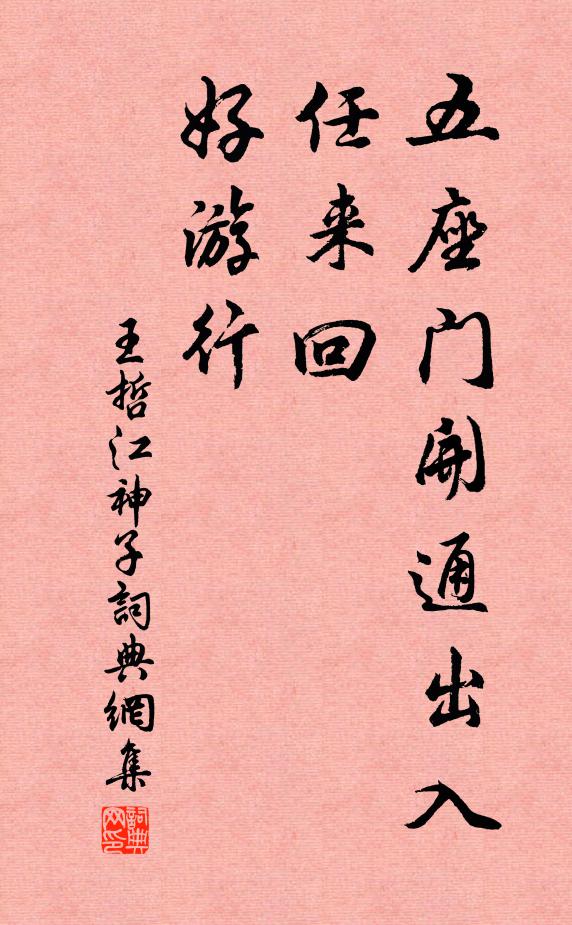 五座门开通出入
任来回
好游行
王哲江神子詞典網集
詞典网印